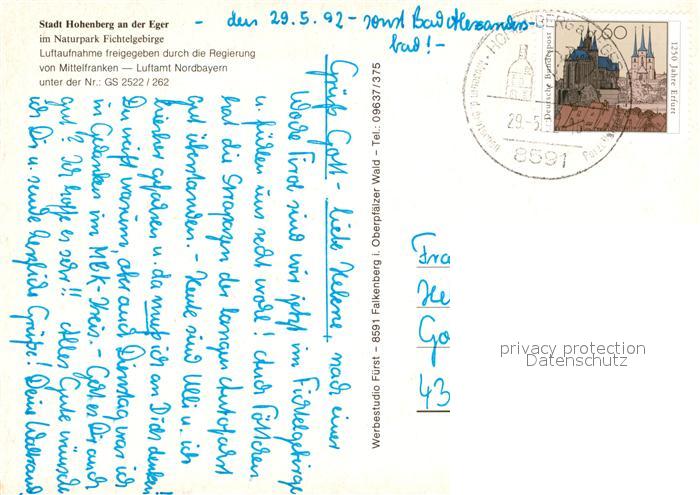 Stadt Hohenberg an der Eger
im Naturpark Fichtelgebirge
Luftaufnahme freigegeben durch die Regierung
von Mittelfranken — Luftamt Nordbayern
unter der Nr.: GS 2522 / 262
- den 29.5.92 - sonst Bad Alexanders-
bad! -
Grüß Gott - liebe Helene, nach einer
Woche Tirol sind wir jetzt im Fichtelgebirge
u. fühlen uns recht wohl! Auch
hat die Strapazen der langen Autofahrt
gut überstanden. - Heute sind Ulli u. ich
hierher gefahren u. da muß ich an Dich denken!
Du weißt warum, aber auch Dienstag war ich
in Gedanken im MBK-Kreis. - Geht es Dir auch
gut? Ich hoffe es sehr!! Alles Gute wünsche
ich Dir u. sende herzliche Grüße! Deine Waltraud
Werbestudio Fürst – 8591 Falkenberg i. Oberpfälzer Wald – Tel.: 09637/375
29.5.
8591
60
Deutsche Bundespost
1250 Jahre Erfurt
Fra
He
Go
43
privacy protection
Datenschutz